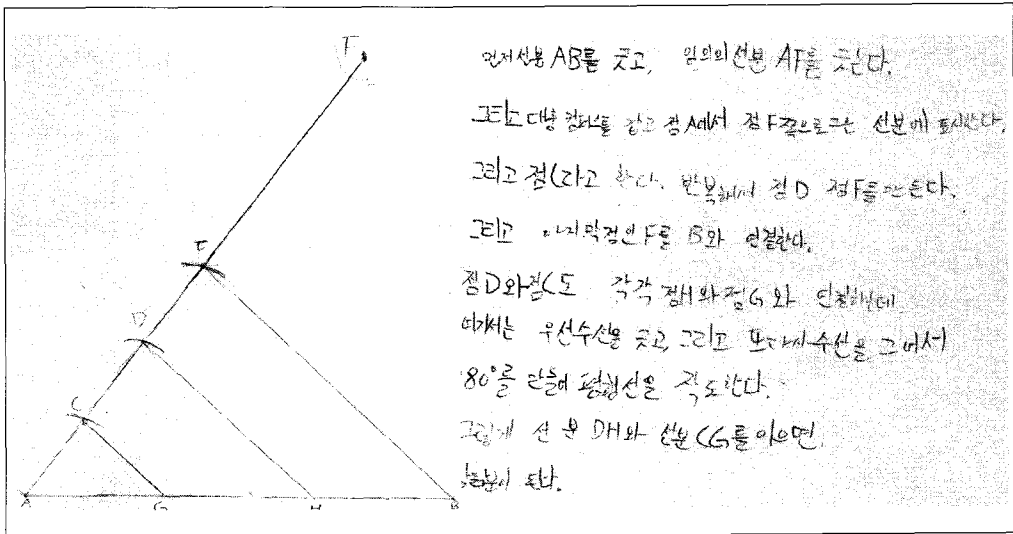 F
E
D
C
A G H B
먼저선분 AB를 긋고, 임의의선분 AF를 긋는다.
그리고 컴퍼스를 갖고 점A에서 점F쪽으로 선분에 표시한다.
그리고 점C라고 한다. 반복해서 점D 점F를 만든다.
그리고 마지막점인F를 B와 연결한다.
점D와점C도 각각 점H와점G와
여기서는 우선수선을 긋고, 그리고 또다시수선을 그어서
180°를 만들어 평행선을 작도한다.
그렇게 선분 DH와 선분CG를 이으면
된다.